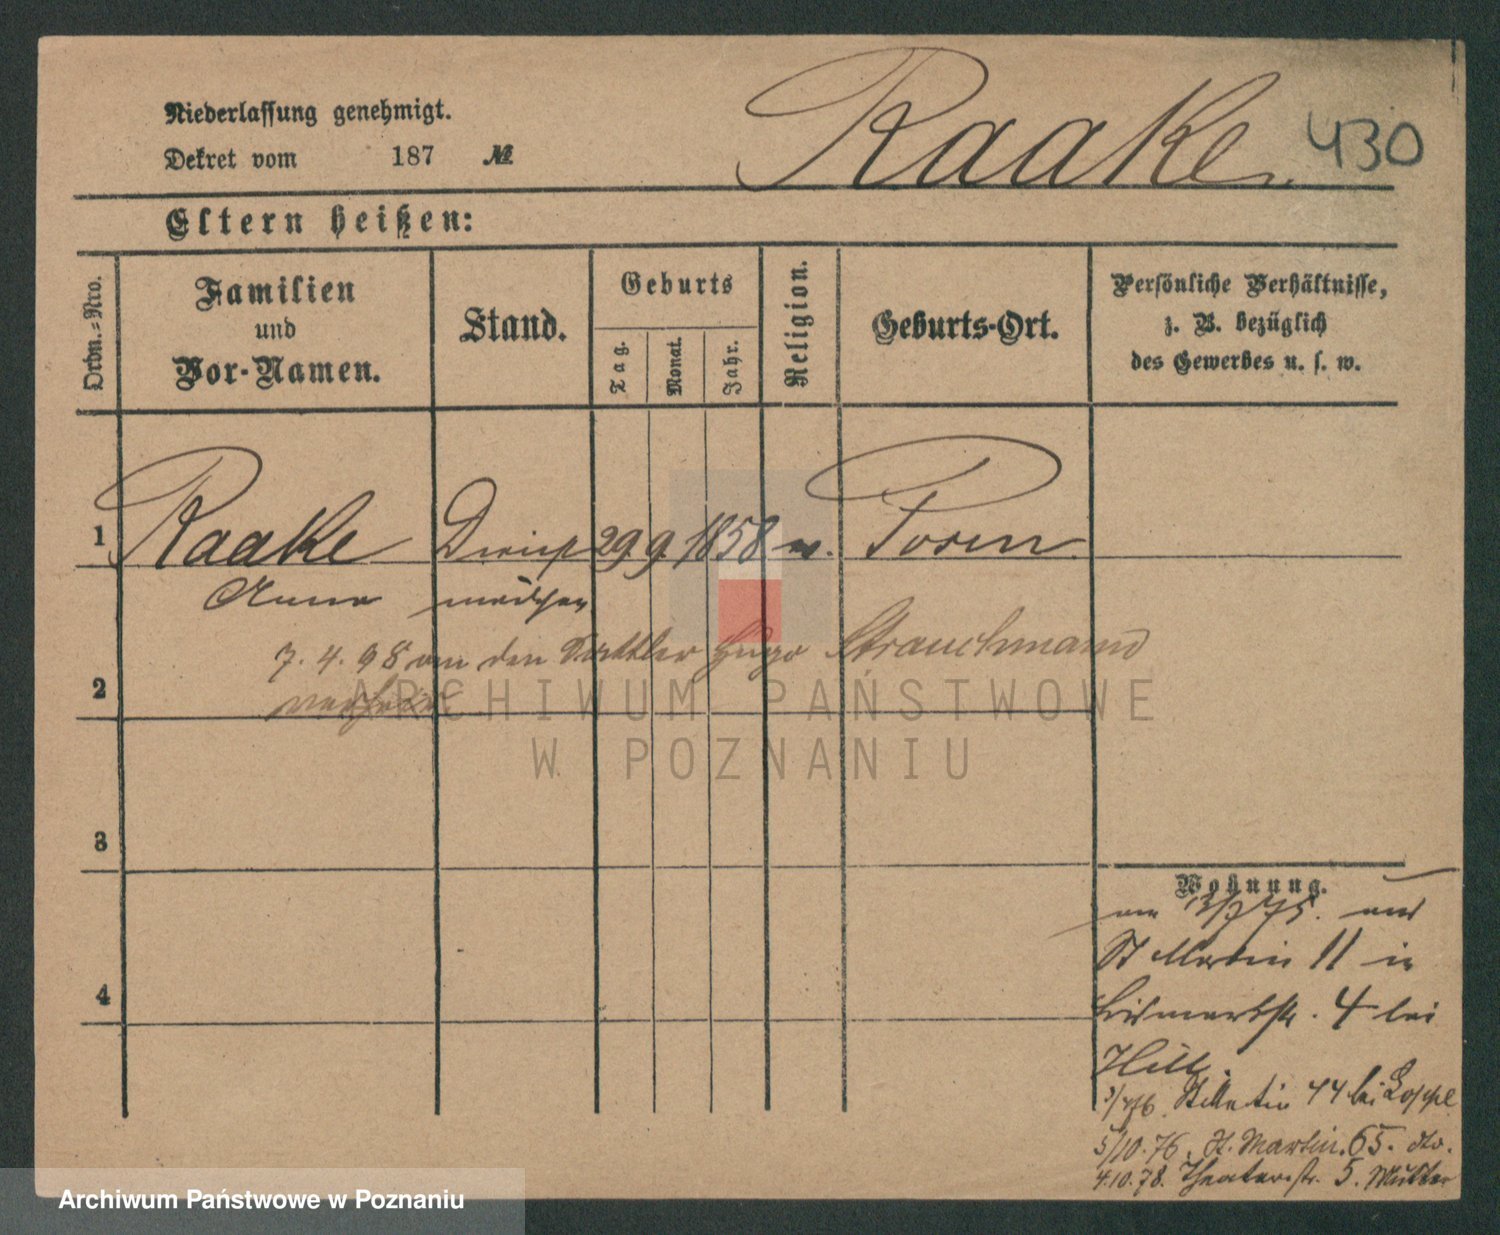 Niederlassung genehmigt.
Raake
430
Dekret vom 187 №
Eltern heißen:
Ordn.=Nro.
Familien
und
Vor-Namen.
Stand.
Geburts
Tag.
Monat.
Jahr.
Religion.
Geburts-Ort.
Persönliche Verhältnisse,
z. B. bezüglich
des Gewerbes u. s. w.
1 Raake Dienst 29 9 1858 Posen
Anna mädchen
7. 4. 98 an den Sattler Hugo Strauchmann
2
3
4
Wohnung.
St Martin 11 in
Bismarckstr. 4 bei
Hill.
St Martin 44 bei
5/10. 76. St. Martin. 65. dto.
4.10.78. Theaterstr. 5. Mutter
ARCHIWUM PAŃSTWOWE
W POZNANIU
Archiwum Państwowe w Poznaniu